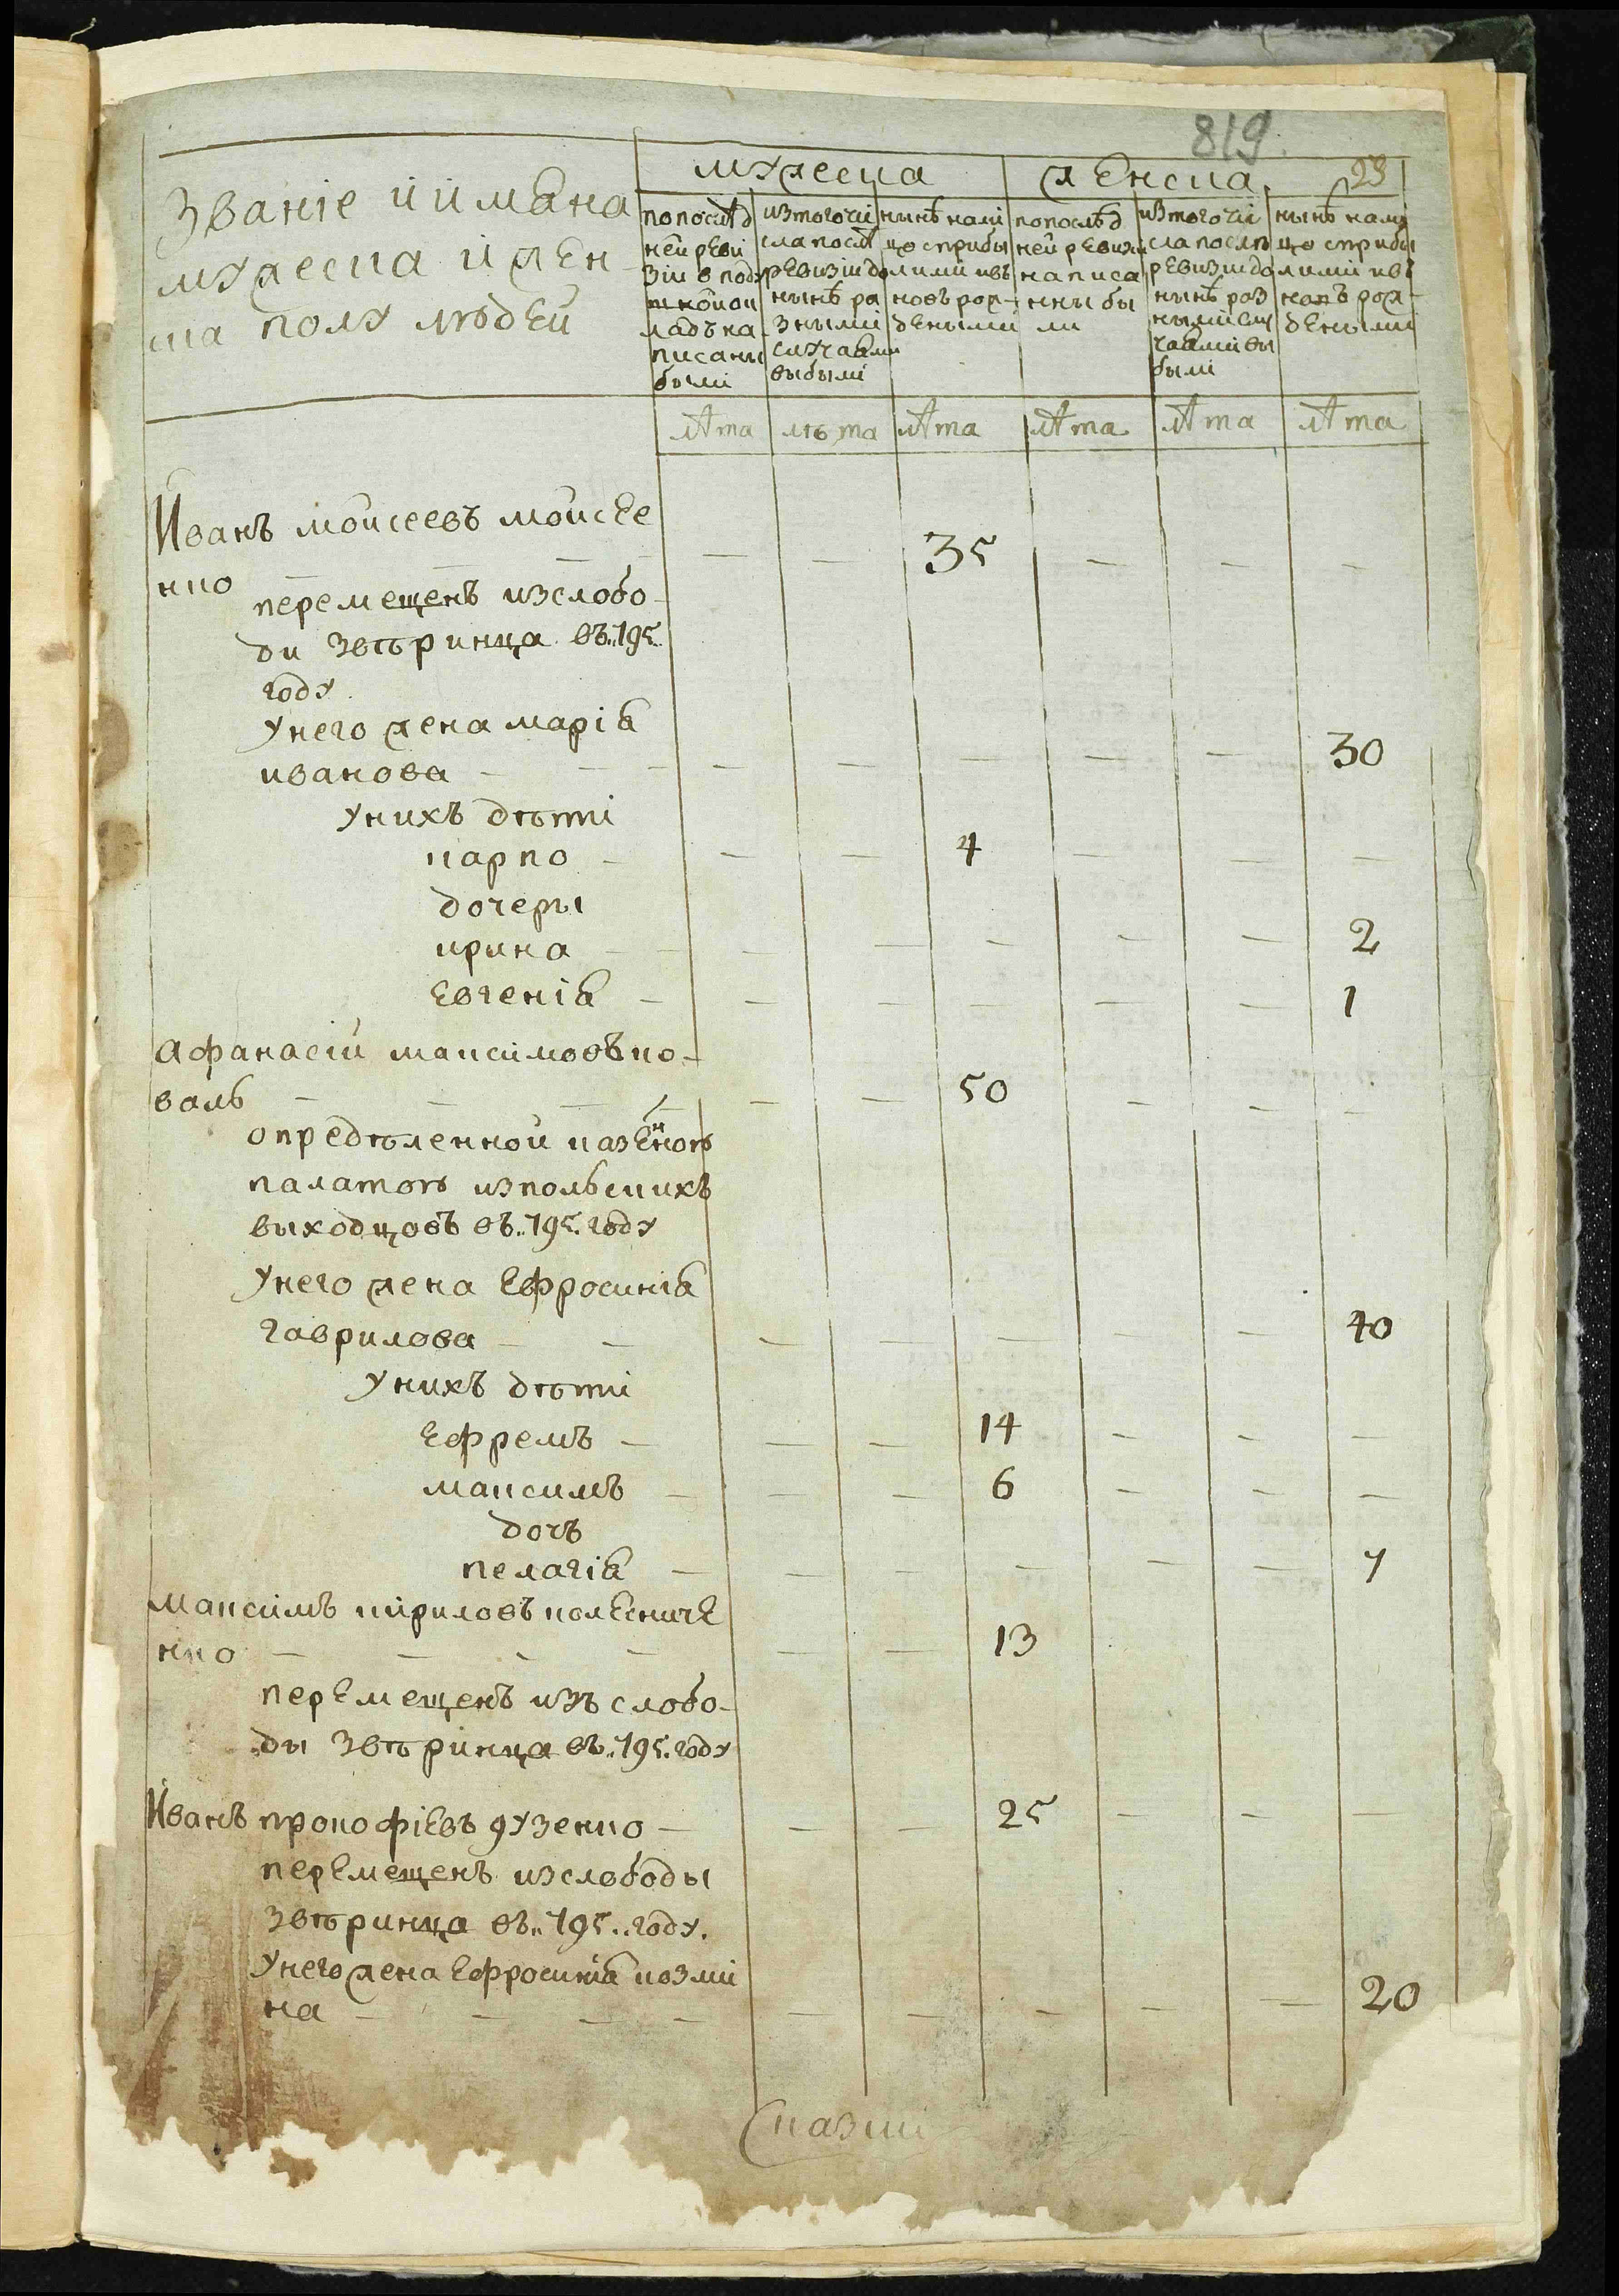 819.
23
мужеска женска
Званіе и имѣна
мужеска и жен-
ска полу людей
попослѣд
ней реви
зіи в под
ладъ на
писаны
были
изтогочи
сла послѣ
ревизіи до
нынѣ ра
зными
случаями
выбыли
нынѣ нали
цо с прибы
лими и въ
новь рож-
деными
попослѣд
ней ревизи
написа
нны бы
ли
изтогочи
сла послѣ
ревизіи до
нынѣ раз
ными слу
чаями вы
были
нынѣ нали
цо с прибы
лими и въ
новъ рож-
деными
лѣта лѣта лѣта лѣта лѣта лѣта
Иванъ моисеевъ моисее
нко — — — — — 35 — — —
перемещенъ изслобо-
ди звѣринца въ..195.
году
Унего жена марія
иванова — — — — — — — — 30
Унихъ дѣти
карпо — — — 4 — — —
дочеры
ирина — — — — — — 2
Евгенія — — — — — — 1
Афанасій максимовъ ко-
валь — — — — — 50 — — —
определенной казенною
палатою изпольскихъ
выходцовъ въ..195. году
Унего жена Ефросинія
гаврилова — — — — — — — 40
Унихъ дѣти
Ефремъ — — — 14 — — —
максимъ — — — 6 — — —
дочъ
пелагія — — — — — — 7
Максимъ кириловъ колесниче
нко — — — — — — 13
перемещенъ изъ слобо-
ды звѣринца въ..195. году
Иванъ прокофіевъ дузенко — — — 25 — — —
перемещенъ изслободы
звѣринца въ..195..году.
Унего жена Ефросинія козми
на — — — — — — — — — 20
казни